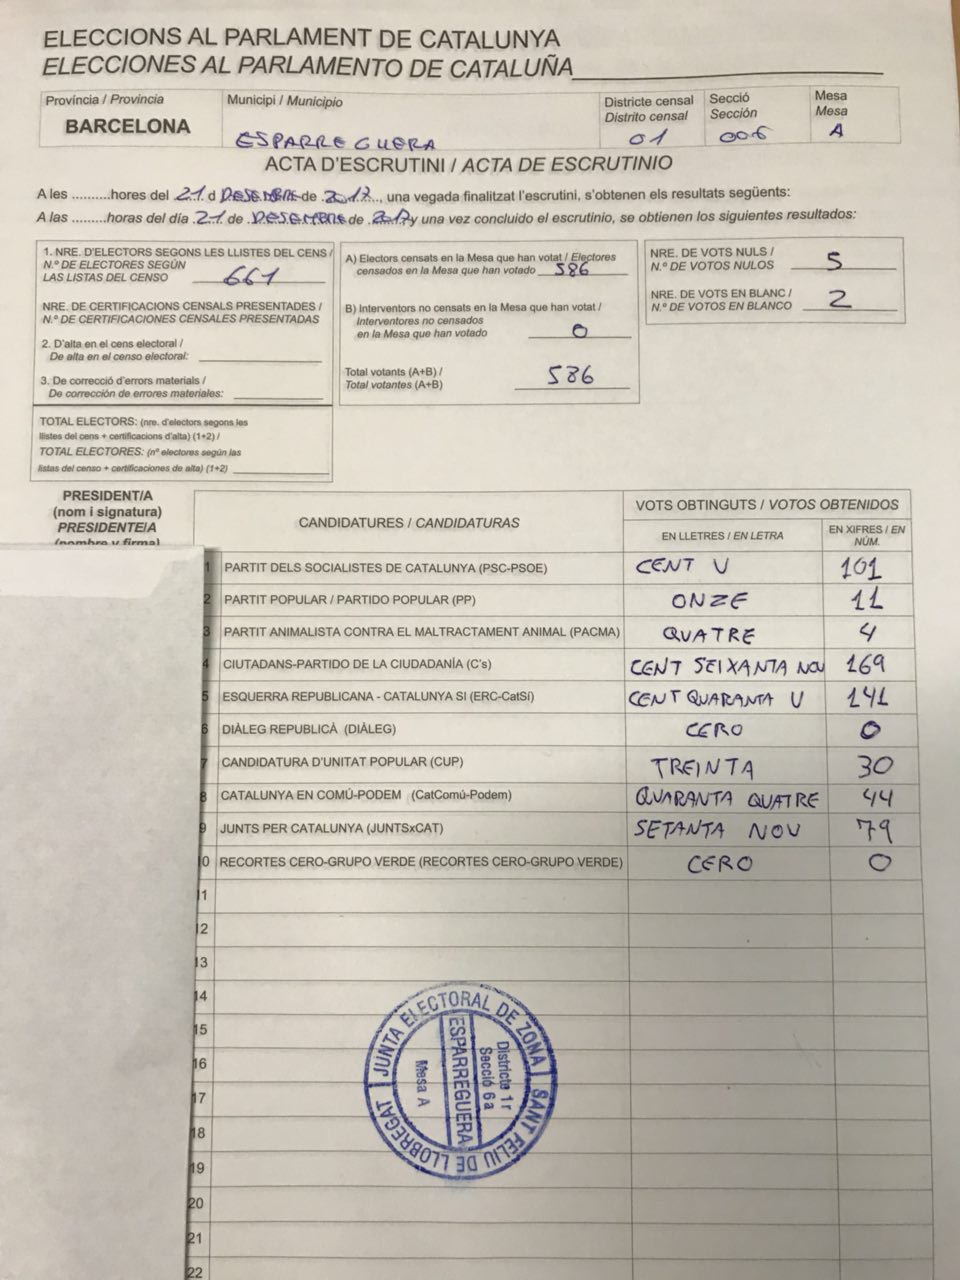 ELECCIONS AL PARLAMENT DE CATALUNYA
ELECCIONES AL PARLAMENTO DE CATALUÑA
Província / Provincia
BARCELONA
Municipi / Municipio
ESPARREGUERA
Districte censal
Distrito censal
01
Secció
Sección
006
Mesa
Mesa
A
ACTA D'ESCRUTINI / ACTA DE ESCRUTINIO
A les .........hores del 21 d DESEMBRE de 2017, una vegada finalitzat l'escrutini, s'obtenen els resultats següents:
A las .........horas del día 21 de DESEMBRE de 2017 y una vez concluido el escrutinio, se obtienen los siguientes resultados:
1. NRE. D'ELECTORS SEGONS LES LLISTES DEL CENS /
N.º DE ELECTORES SEGÚN
LAS LISTAS DEL CENSO 661
NRE. DE CERTIFICACIONS CENSALS PRESENTADES /
N.º DE CERTIFICACIONES CENSALES PRESENTADAS
2. D'alta en el cens electoral /
De alta en el censo electoral:
3. De correcció d'errors materials /
De corrección de errores materiales:
TOTAL ELECTORS: (nre. d'electors segons les
llistes del cens + certificacions d'alta) (1+2) /
TOTAL ELECTORES: (nº electores según las
listas del censo + certificaciones de alta) (1+2)
A) Electors censats en la Mesa que han votat / Electores
censados en la Mesa que han votado 586
B) Interventors no censats en la Mesa que han votat /
Interventores no censados
en la Mesa que han votado 0
Total votants (A+B) /
Total votantes (A+B) 586
NRE. DE VOTS NULS /
N.º DE VOTOS NULOS 5
NRE. DE VOTS EN BLANC /
N.º DE VOTOS EN BLANCO 2
PRESIDENT/A
(nom i signatura)
PRESIDENTE/A
(nombre y firma)
CANDIDATURES / CANDIDATURAS
VOTS OBTINGUTS / VOTOS OBTENIDOS
EN LLETRES / EN LETRA
EN XIFRES / EN NÚM.
1 PARTIT DELS SOCIALISTES DE CATALUNYA (PSC-PSOE) CENT U 101
2 PARTIT POPULAR / PARTIDO POPULAR (PP) ONZE 11
3 PARTIT ANIMALISTA CONTRA EL MALTRACTAMENT ANIMAL (PACMA) QUATRE 4
4 CIUTADANS-PARTIDO DE LA CIUDADANÍA (C's) CENT SEIXANTA NOU 169
5 ESQUERRA REPUBLICANA - CATALUNYA SI (ERC-CatSí) CENT QUARANTA U 141
6 DIÀLEG REPUBLICÀ (DIÀLEG) CERO 0
7 CANDIDATURA D'UNITAT POPULAR (CUP) TREINTA 30
8 CATALUNYA EN COMÚ-PODEM (CatComú-Podem) QUARANTA QUATRE 44
9 JUNTS PER CATALUNYA (JUNTSxCAT) SETANTA NOU 79
0 RECORTES CERO-GRUPO VERDE (RECORTES CERO-GRUPO VERDE) CERO 0
11
12
13
14
15
16
17
18
19
20
21
22
JUNTA ELECTORAL DE ZONA
SANT FELIU DE LLOBREGAT
Districte 1r
Secció 6a
ESPARREGUERA
Mesa A